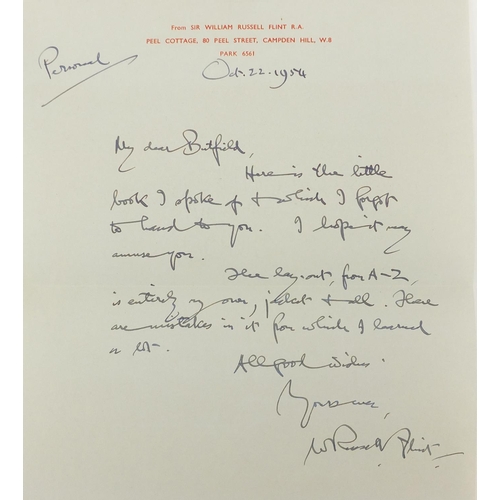 From SIR WILLIAM RUSSELL FLINT R.A.
PEEL COTTAGE, 80 PEEL STREET, CAMPDEN HILL, W.8
PARK 6561
Personal
Oct. 22. 1954
My dear Butfield,
Here is the little
book I spoke of & which I forgot
to hand to you. I hope it may
amuse you.
The lay-out, from A-Z,
is entirely my own, jacket & all. There
are mistakes in it from which I learned
a lot.
All good wishes
Yours ever,
W Russell Flint.